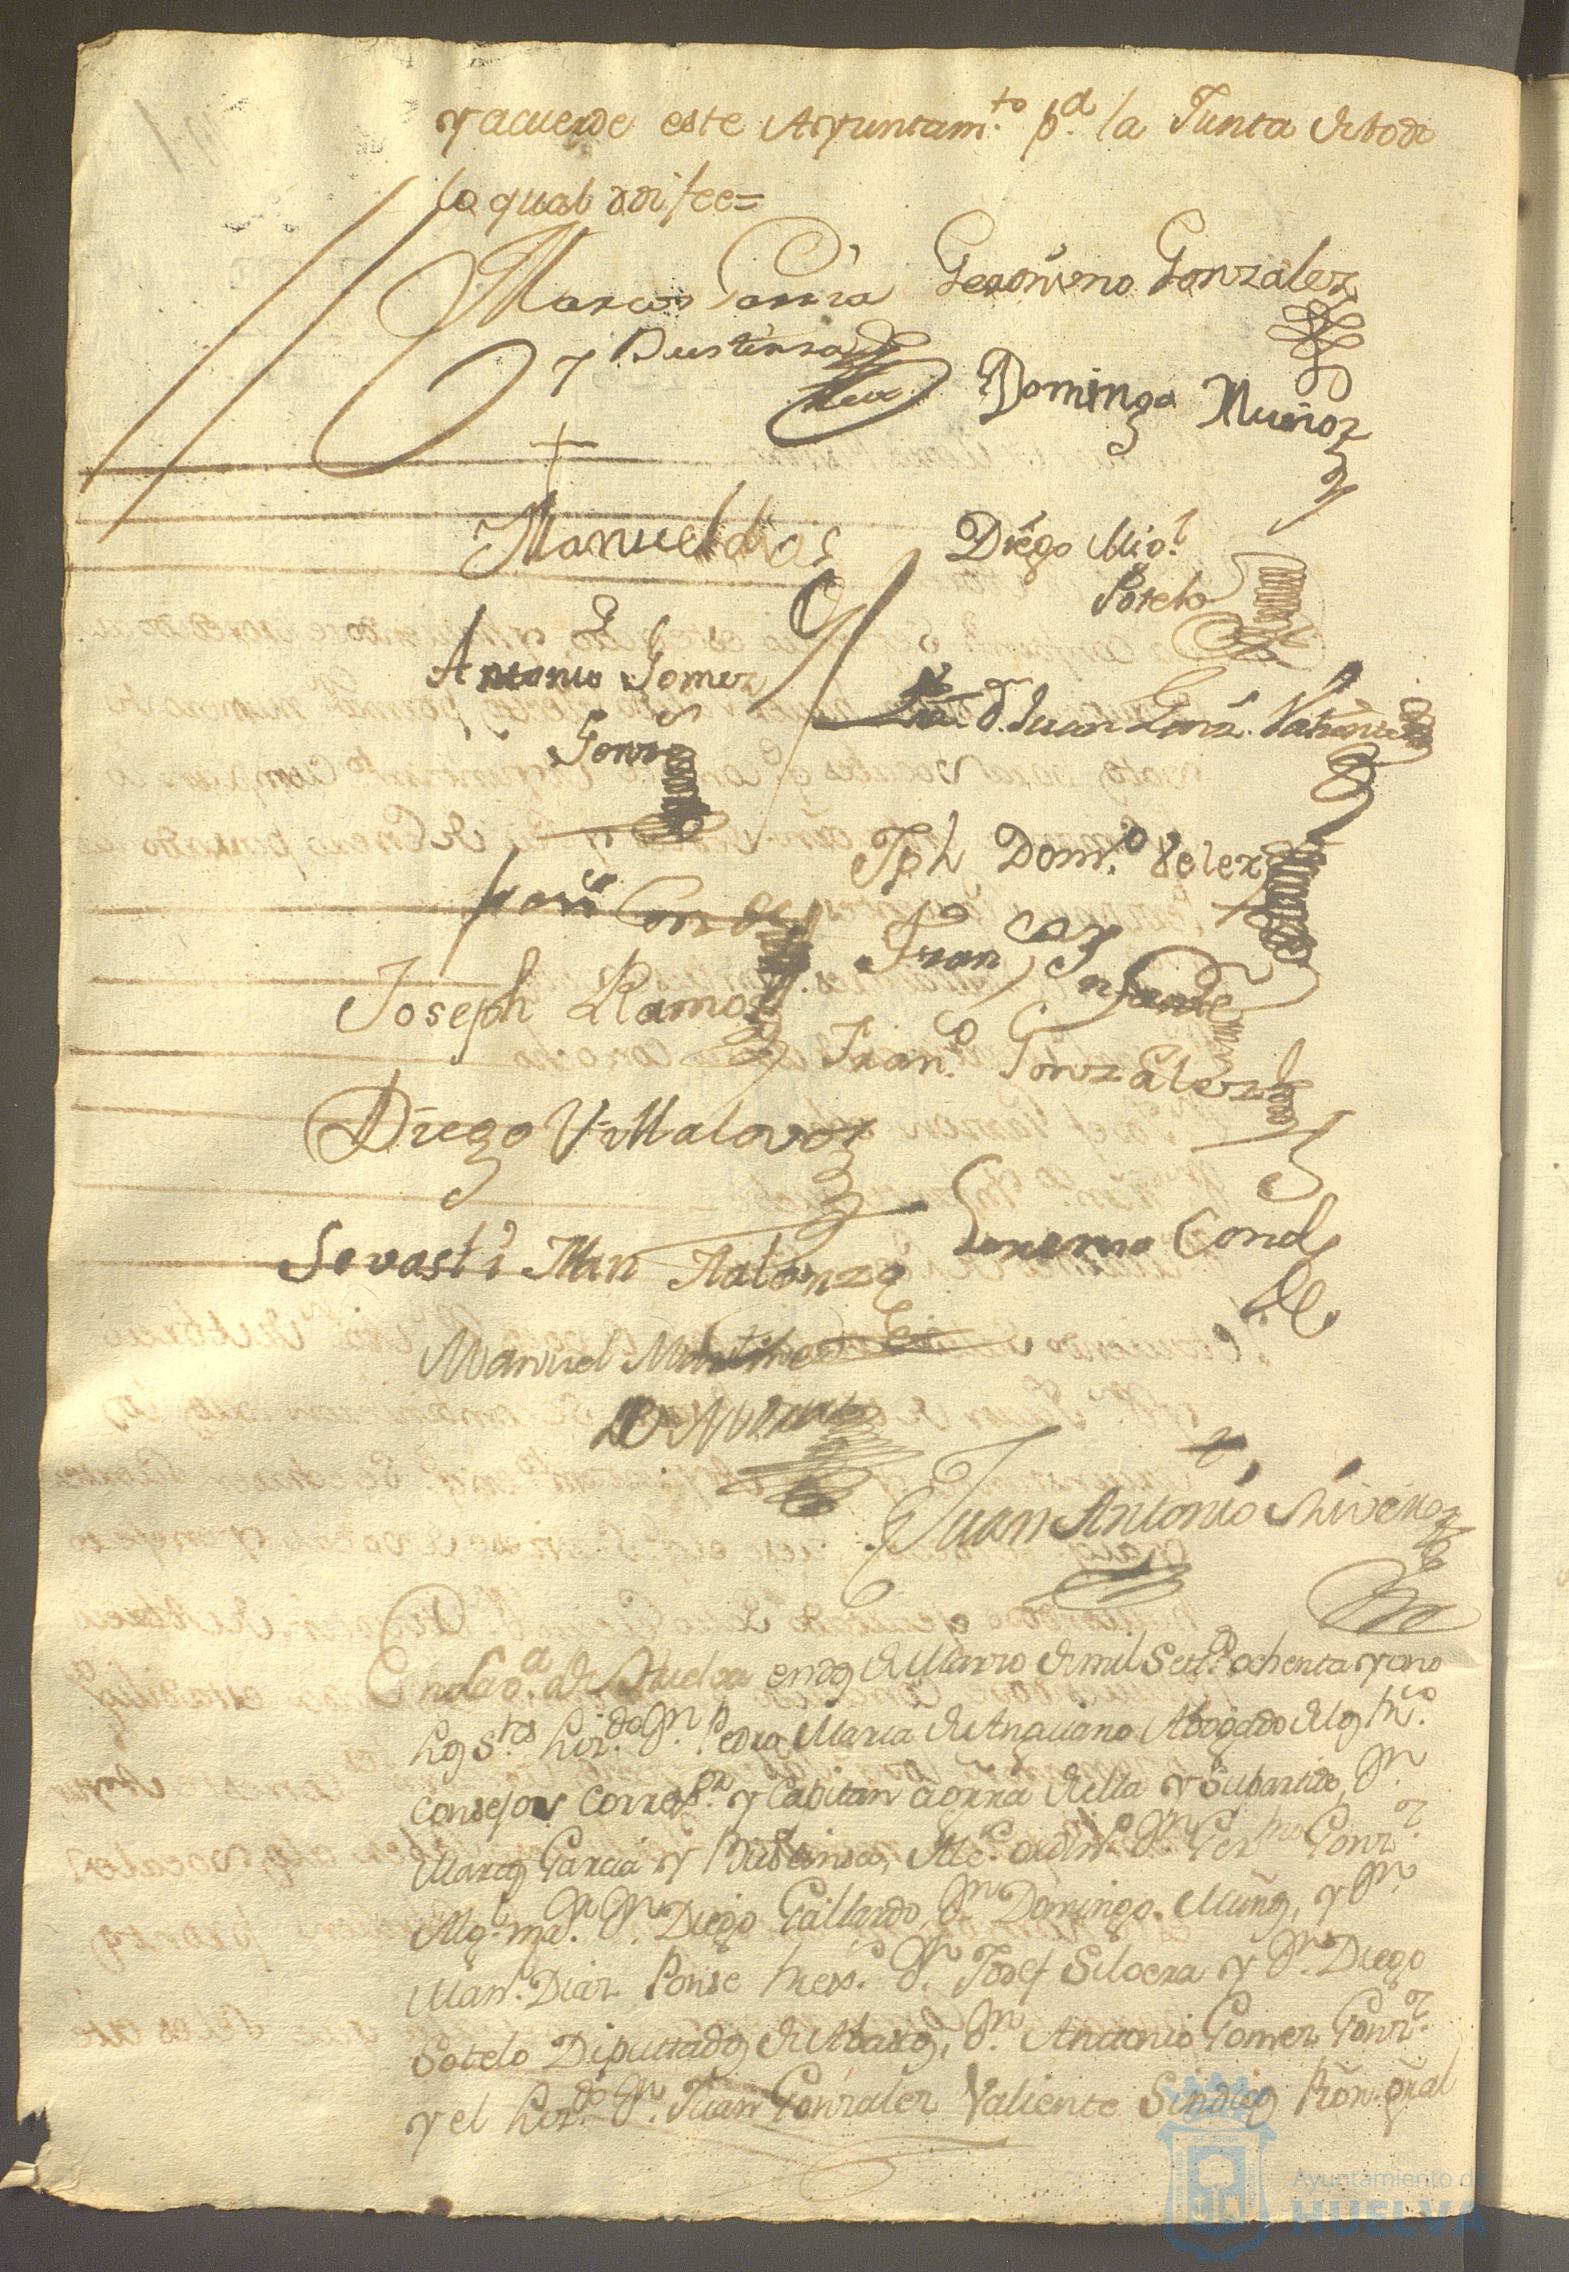 y acuerde este Ayuntam.to p.a la Junta de todo
lo qual doi fee=
Marcos Garcia
y Bustinza
Geronimo Gonzalez
Domingo Muñoz
Manuel dias
Diego Mig.l
Sotelo
Antonio Gomez
Gonz
Liz.do d.n Juan Gonz. Valiente
Jph Dom.o Velez
Conde
Fran.co Ynfante
Joseph Ramos
Fran.co Gonzalez
Diego Villalovos
Lorenzo Conde
Sevasti Man
Manuel Martinez
Juan Antonio
En la v.a de Huelva en dos de Marzo de mil Set.s ochenta y uno
los S.res Liz.do D.n Pedro Maria de Anguiano Abogado de los R.s
Consejos Correg.or y Capitan a Gerra de ella y Su partido, D.n
Marcos Garcia y Bustinza, Alc.e ordin.o D.n Ger.mo Gonz.z
Alg.l ma.r D.n Diego Gallardo, D.n Domingo Muños, y D.n
Man.l Diaz Ponse Rexs. D.n Josef Silvera y D.n Diego
Sotelo Diputtados de Abaxos, D.n Antonio Gomez Gonz.z
y el Liz.do D.n Juan Gonzalez Valiente Sindico Prôn. gral
Ayuntamiento de
HUELVA